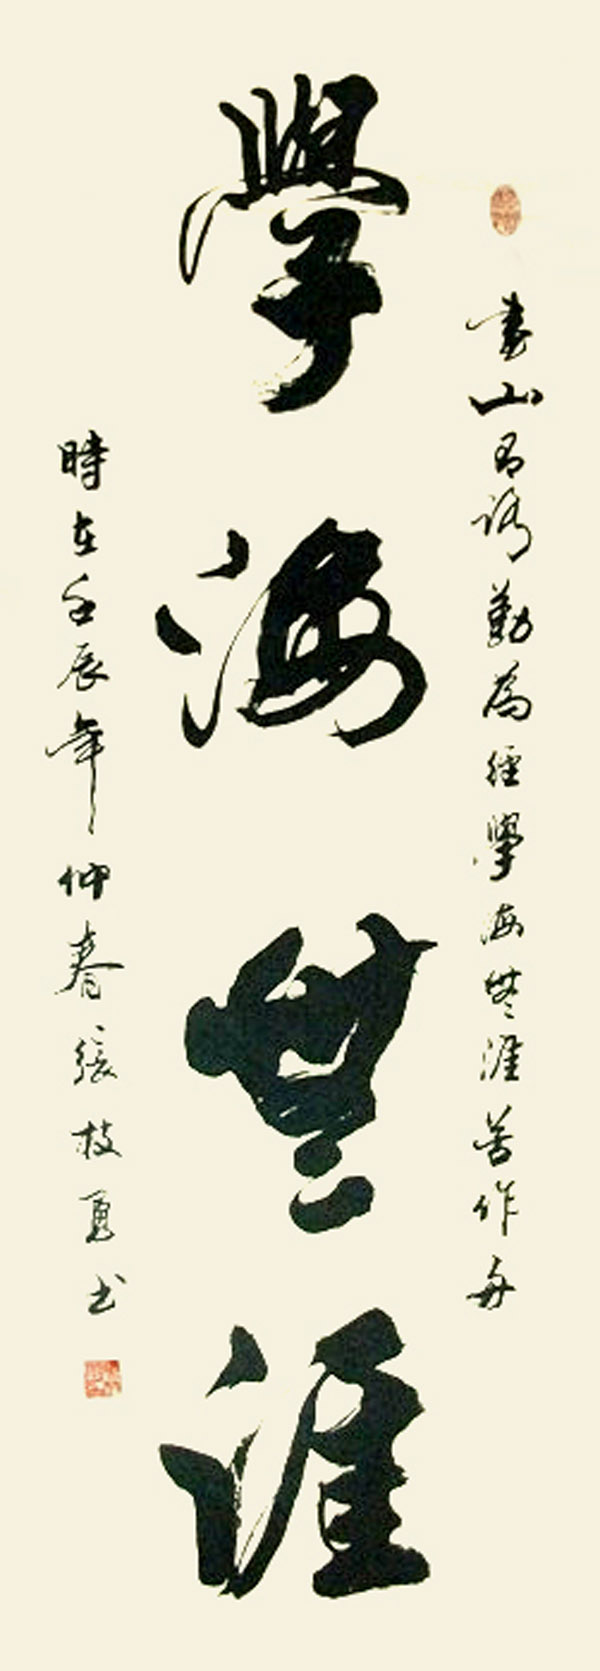 書山有路勤為經學海無涯苦作舟
學海無涯
時在壬辰年仲春張枝勇書